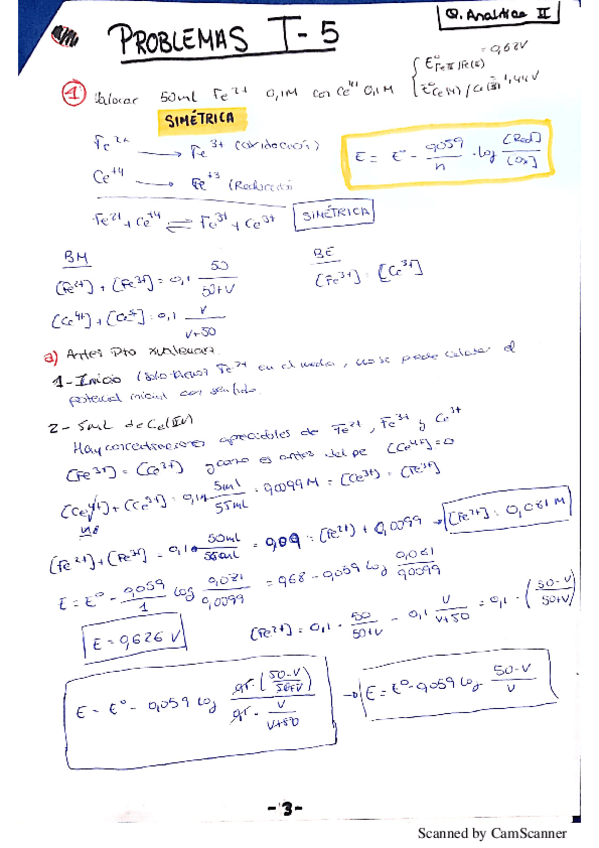 Q. Analítica II
PROBLEMAS T-5
① Valorar 50ml Fe²⁺ 0,1M con Ce⁴⁺ 0,1M
E°Fe(III)/Fe(II) = 0,68V
E°Ce(IV)/Ce(III) 1,44V
SIMÉTRICA
Fe²⁺ → Fe³⁺ (oxidación)
E = E° - 0,059/n · log [Red]/[Ox]
Ce⁺⁴ → Ce⁺³ (Reducción
Fe²⁺ + Ce⁺⁴ ⇌ Fe³⁺ + Ce³⁺ SIMÉTRICA
BM
BE
[Fe²⁺] + [Fe³⁺] = 0,1 50/50+V
[Fe³⁺] = [Ce³⁺]
[Ce⁴⁺] + [Ce³⁺] = 0,1 V/V+50
a) Antes Pto
1- Inicio (solo tienes Fe²⁺ en el medio, no se puede calcular el
potencial inicial con sentido.
2- 5mL de Ce(IV)
Hay concentraciones apreciables de Fe²⁺, Fe³⁺ y Ce³⁺
[Fe³⁺] = [Ce³⁺] y como es antes del pe [Ce⁴⁺] = 0
[Ce⁴⁺] + [Ce³⁺] = 0,1 5ml/55ml = 0,0099 M = [Ce³⁺] = [Fe³⁺]
[Fe²⁺] + [Fe³⁺] = 0,1 50ml/55ml = 0,09 = [Fe²⁺] + 0,0099 → [Fe²⁺] = 0,081 M
E = E° - 0,059/1 log 0,081/0,0099 = 0,68 - 0,059 log 0,081/0,0099
E = 0,626 V
[Fe²⁺] = 0,1 · 50/50+V - 0,1 V/V+50 = 0,1 · (50-V/50+V)
E = E° - 0,059 log 0,1 · (50-V/50+V)/0,1 · V/V+50 → E = E° - 0,059 log 50-V/V
-3-
Scanned by CamScanner